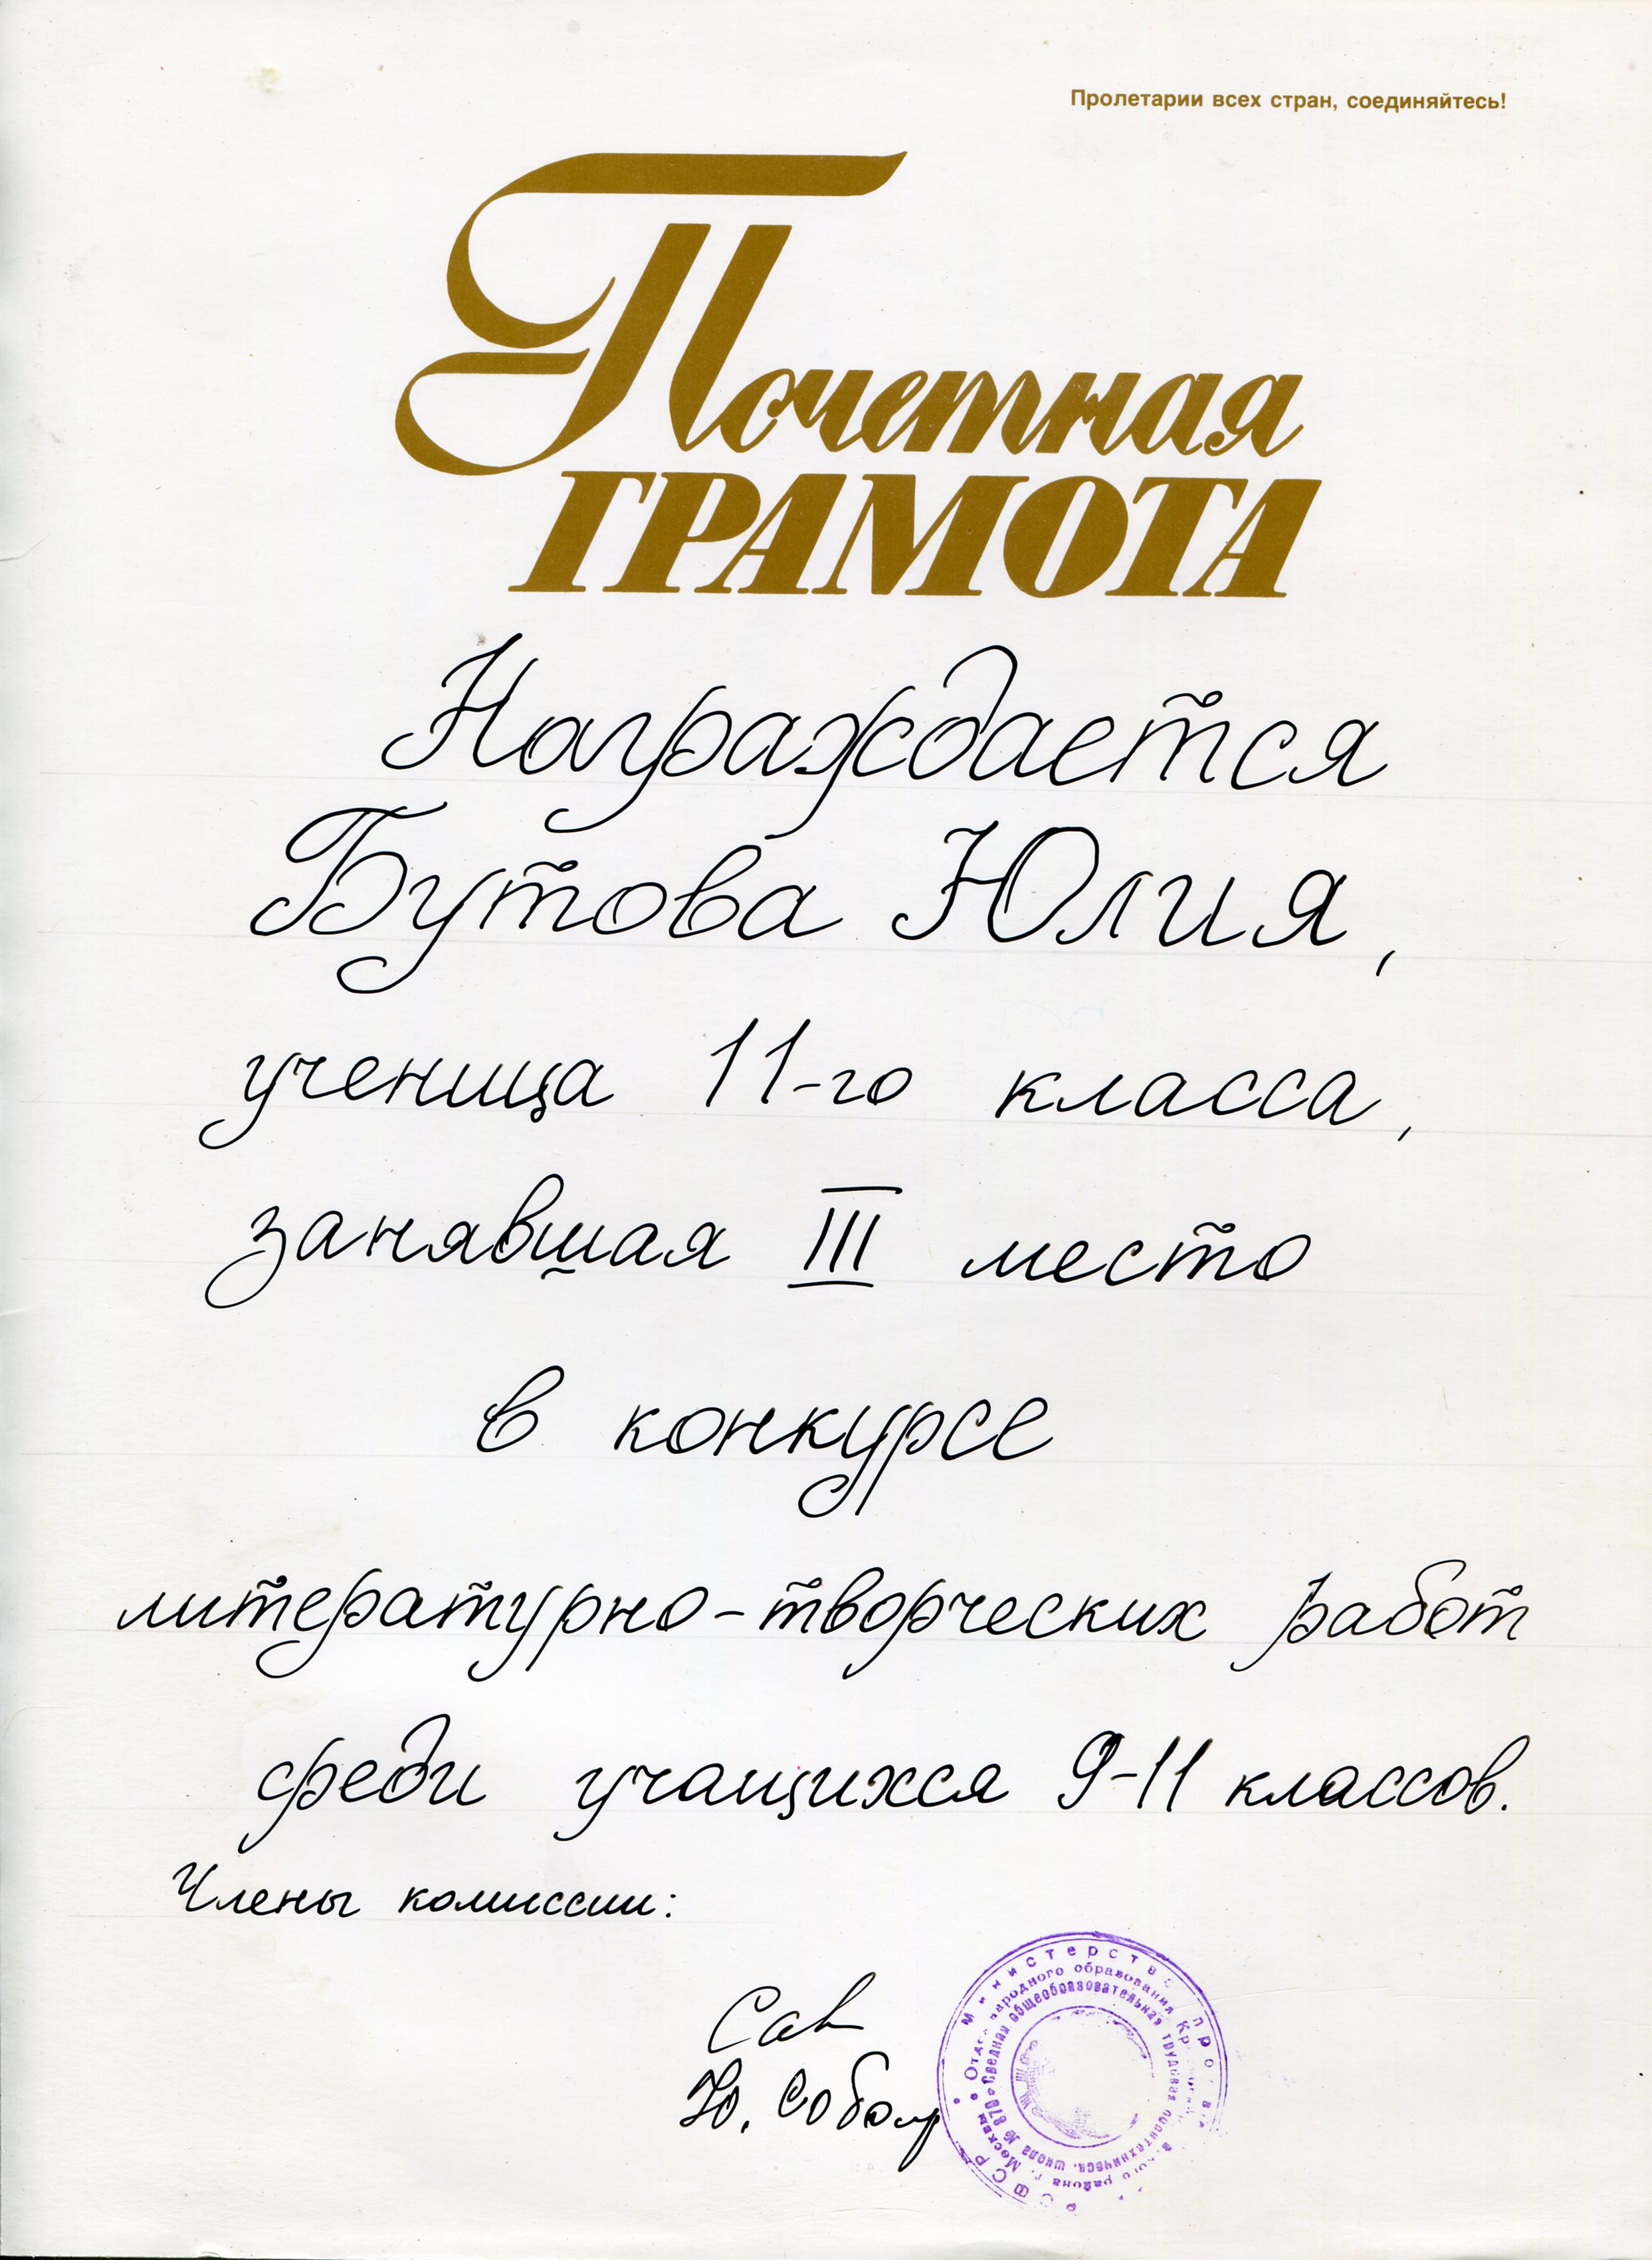 Пролетарии всех стран, соединяйтесь!
Почетная
ГРАМОТА
Награждается
Бутова Юлия,
ученица 11-го класса,
занявшая III место
в конкурсе
литературно-творческих работ
среди учащихся 9-11 классов.
Члены комиссии:
Сав
Ю. Собол
РСФСР Министерство
Отдел народного образования
г. Москвы
Средняя общеобразовательная трудовая политехническ. школа № 870